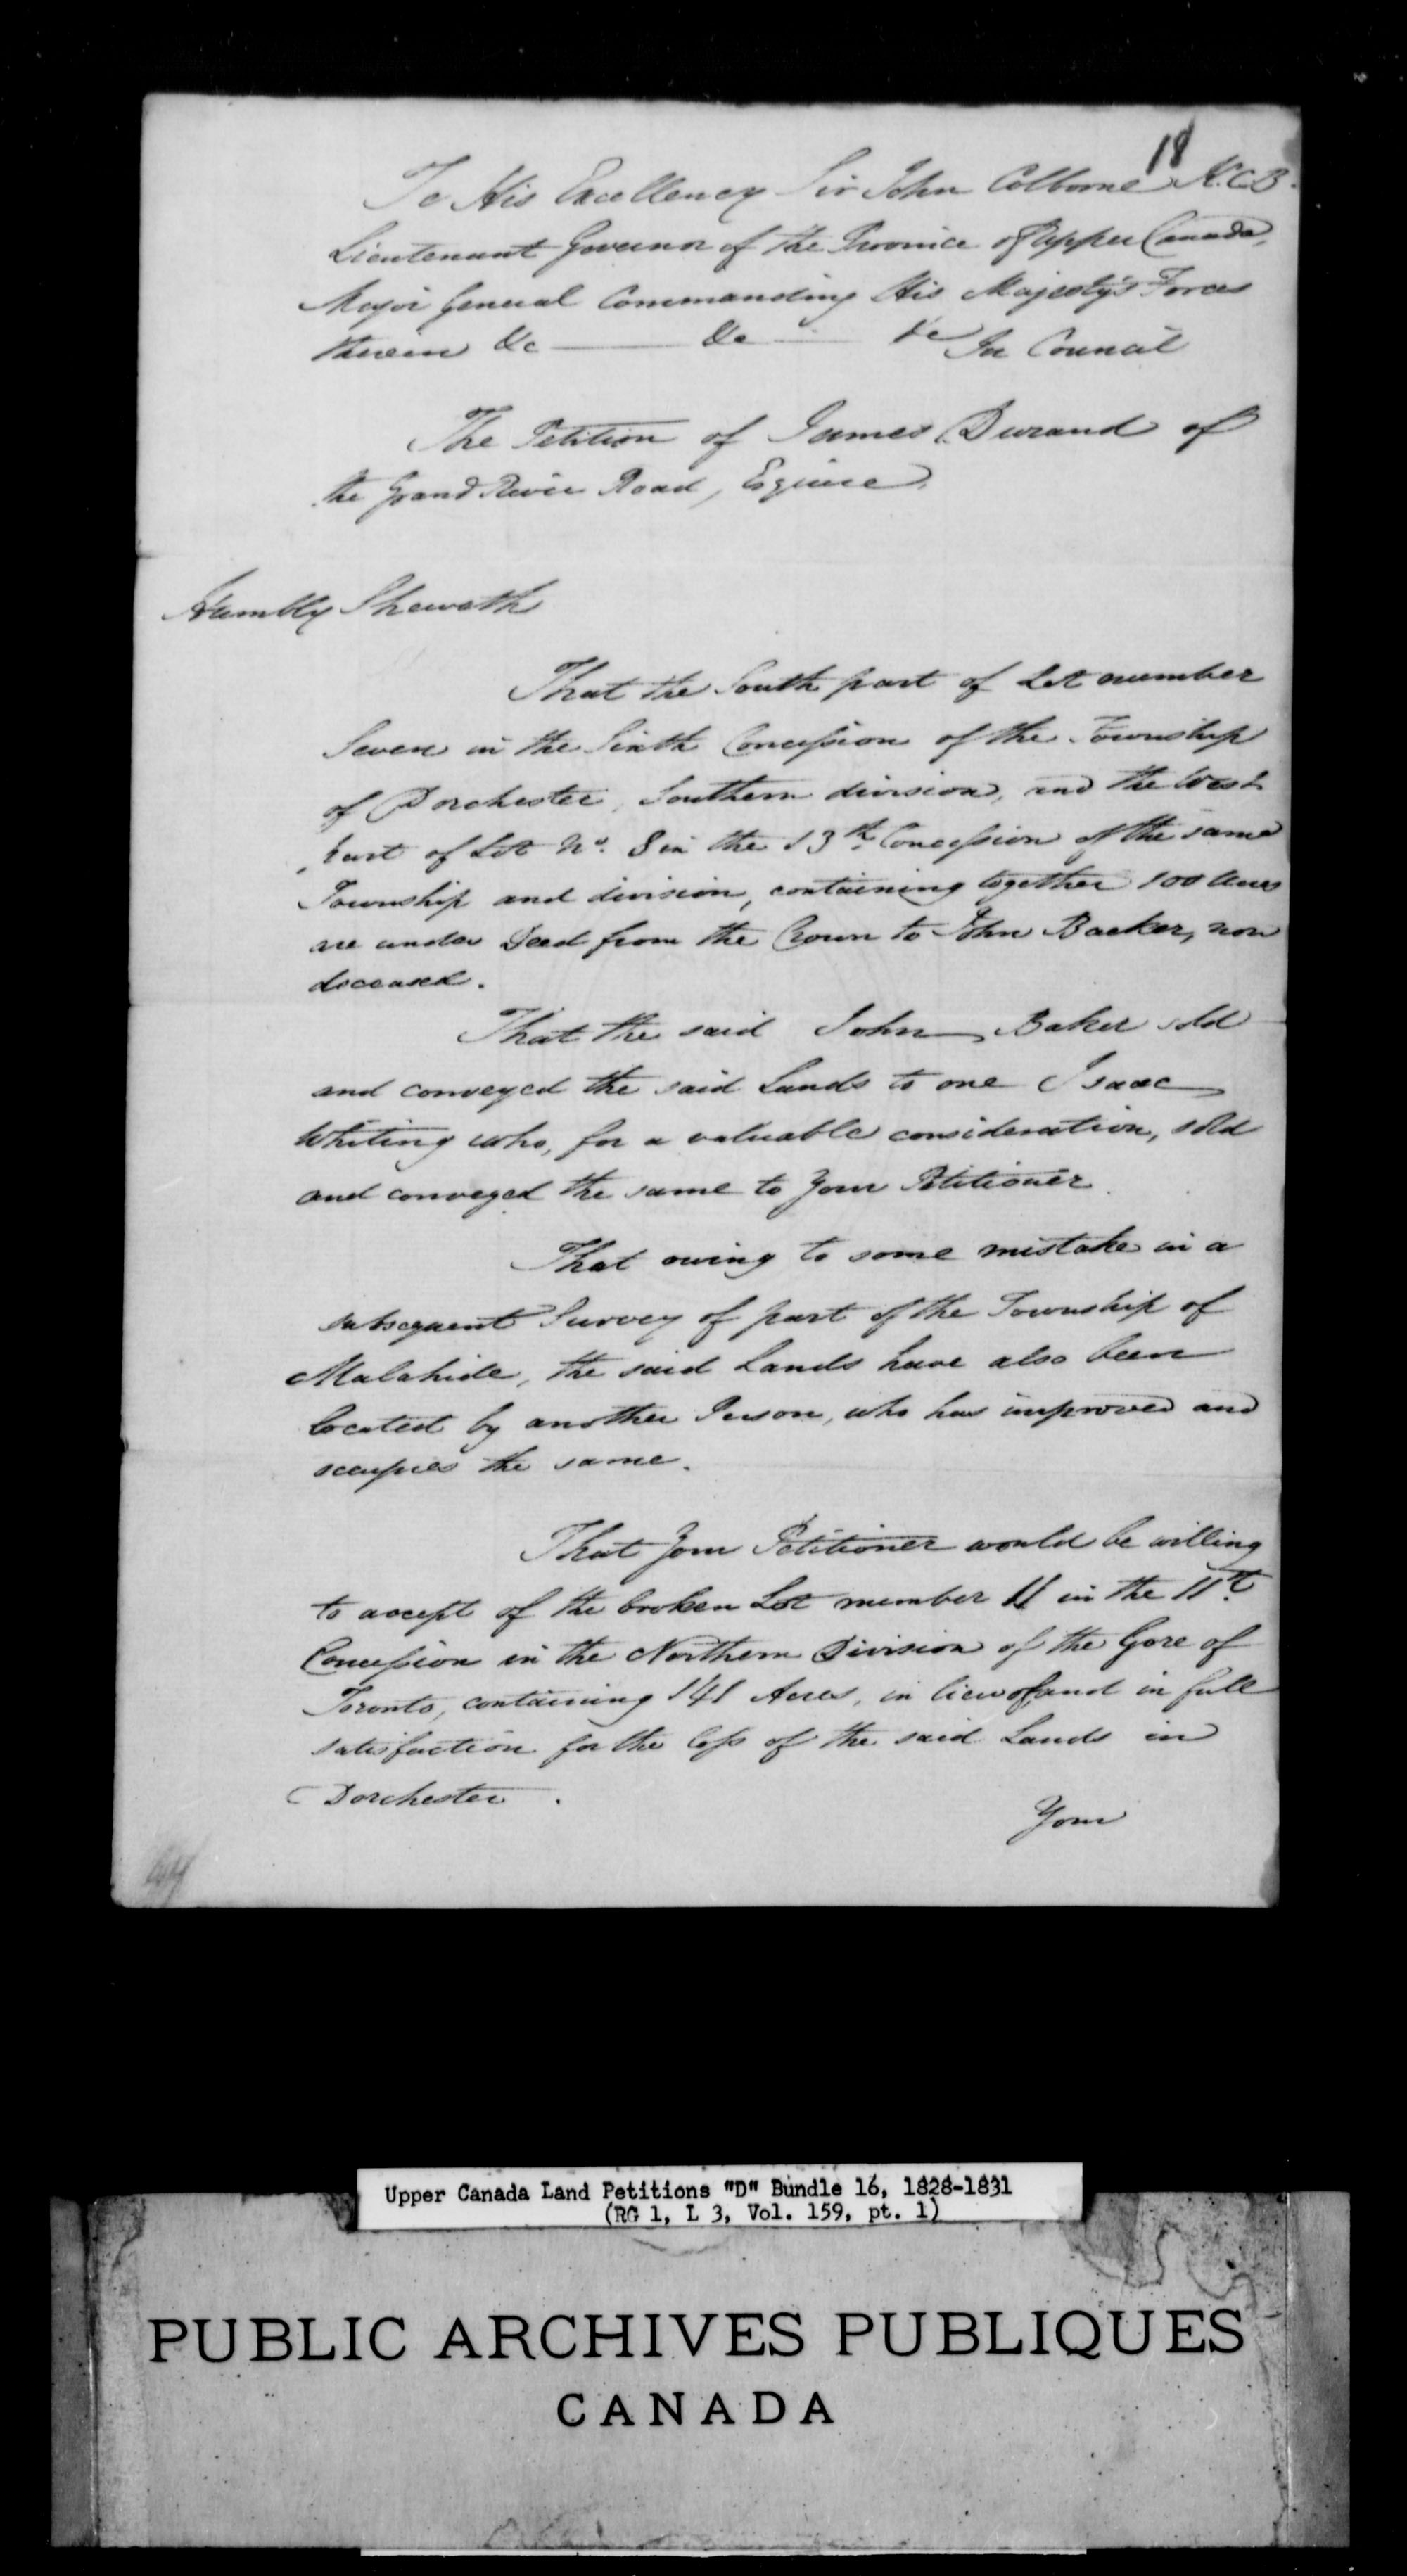 18
To His Excellency Sir John Colborne K.C.B.
Lieutenant Governor of the Province of Upper Canada,
Major General Commanding His Majesty's Forces
therein &c — &c — &c
In Council
The Petition of James Durand of
the Grand River Road, Esquire.
Humbly Sheweth
That the South part of Lot number
Seven in the Sixth Concession of the Township
of Dorchester, Southern division, and the West
part of Lot No. 8 in the 13th Concession of the same
Township and division, containing together 100 Acres
are under Deed from the Crown to John Backer, now
deceased.
That the said John Baker sold
and conveyed the said Lands to one Isaac
Whiting who, for a valuable consideration, sold
and conveyed the same to Your Petitioner.
That owing to some mistake in a
subsequent Survey of part of the Township of
Malahide, the said Lands have also been
located by another Person, who has improved and
occupies the same.
That Your Petitioner would be willing
to accept of the broken Lot number 11 in the 11th
Concession in the Northern Division of the Gore of
Toronto, containing 141 Acres, in lieu of, and in full
satisfaction for the loss of the said Lands in
Dorchester.
Your
Upper Canada Land Petitions "D" Bundle 16, 1828-1831
(RG 1, L 3, Vol. 159, pt. 1)
PUBLIC ARCHIVES PUBLIQUES
CANADA